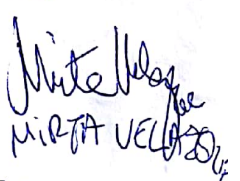 Mirta Velazque
MIRTA VELAZQU